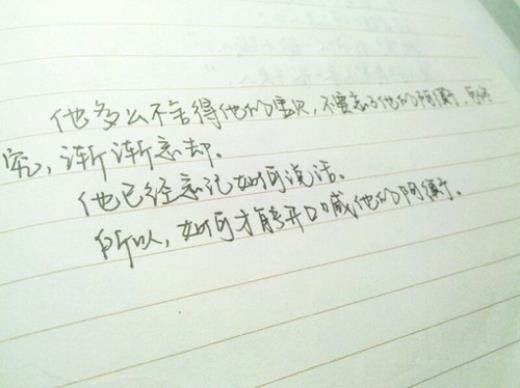 他多么不舍得他的意识,不要忘了他的阿衡,终
究,渐渐忘却。
他已经忘记如何说话。
所以,如何才能开口喊他的阿衡。